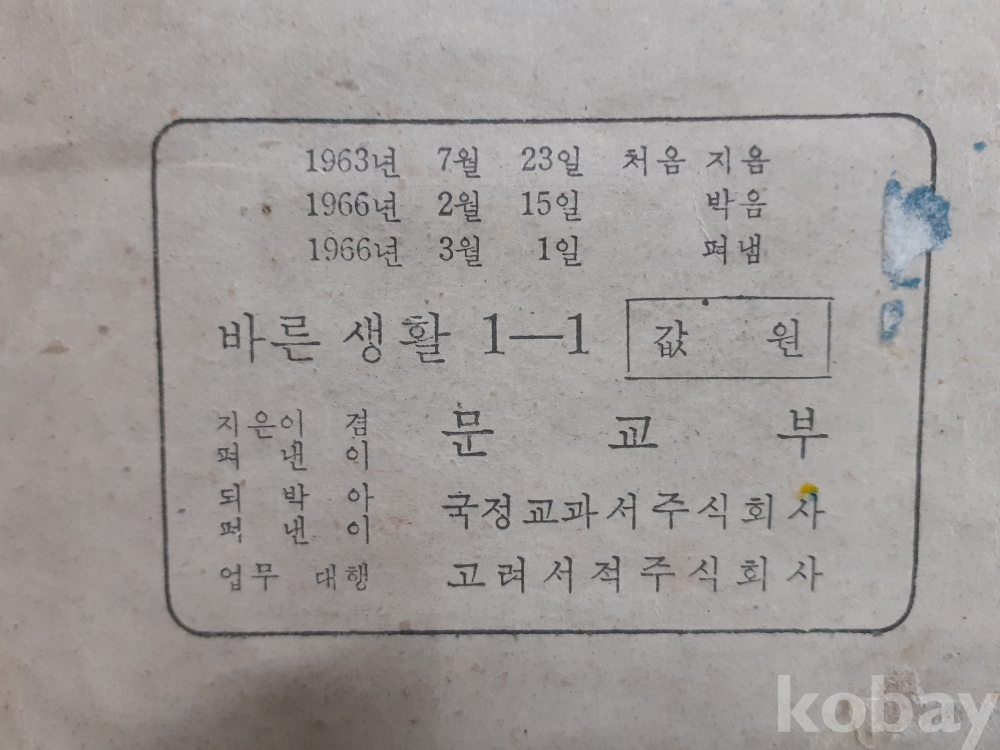 1963년 7월 23일 처음 지음
1966년 2월 15일 박음
1966년 3월 1일 펴냄
바른 생활 1—1 값 원
지은이 겸
펴 낸 이
문 교 부
되 박 아
펴 낸 이
국정교과서주식회사
업무 대행 고려서적주식회사
kobay